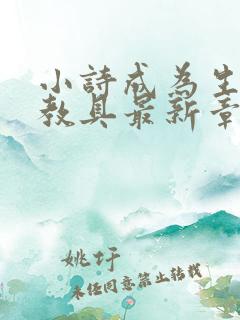 小詩成為生
教具最新章
姚圩
未經同意禁止轉載